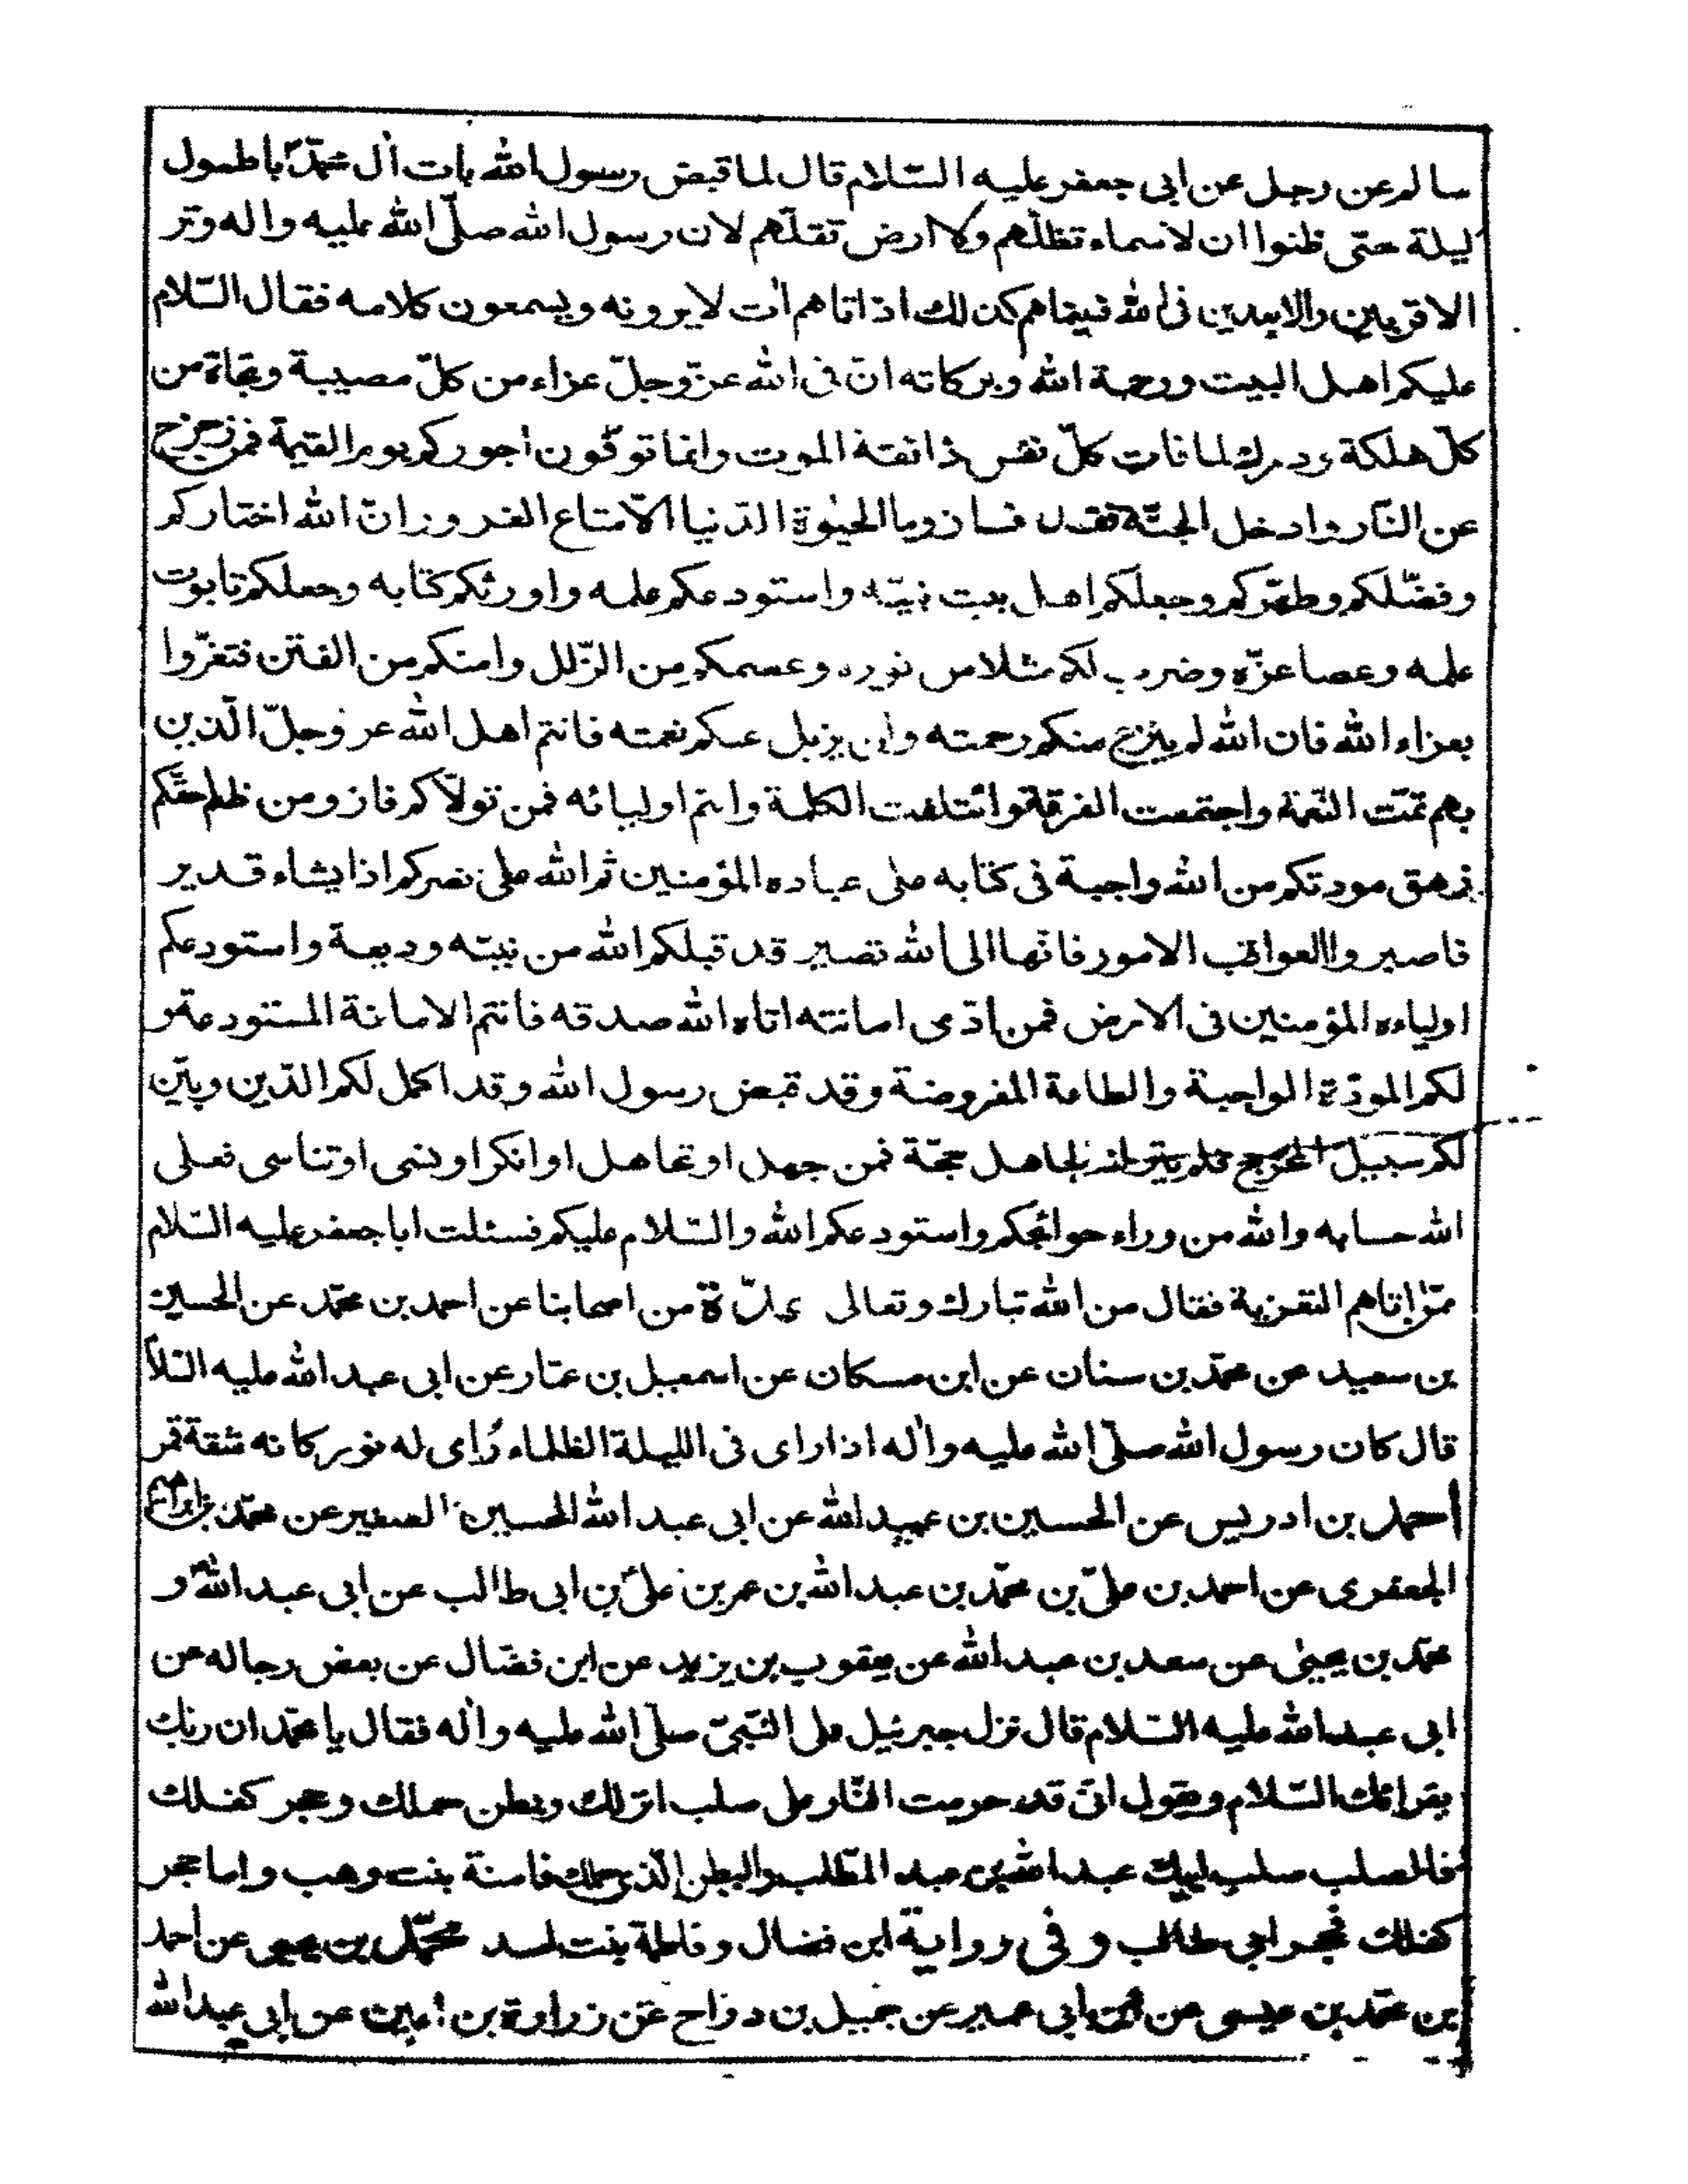 سالم عن رجل عن ابی جعفر علیه السّلام قال لما قبض رسول الله بات اٰل محمّد باطول
لیلة حتی ظنوا ان لا سماء تظلّهم ولا ارض تقلّهم لان رسول الله صلّی الله علیه واله وتر
الاقربین والابعدین فی الله فبیناهم کذلك اذ اتاهم اٰت لا یرونه ویسمعون کلامه فقال السّلام
علیکم اهل البیت ورحمة الله وبرکاته انّ فی الله عزّ وجلّ عزاء من کلّ مصیبة ونجاة من
کلّ هلکة ودرك لما فات کلّ نفس ذائقة الموت وانما توفّون اجورکم یوم القیمة فمن زحزح
عن النّار وادخل الجنّة فقد فاز وما الحیٰوة الدّنیا الّا متاع الغرور انّ الله اختارکم
وفضّلکم وطهّرکم وجعلکم اهل بیت نبیّه واستودعکم علمه واورثکم کتابه وجعلکم تابوت
علمه وعصا عزّه وضرب لکم مثلا من نوره وعصمکم من الزّلل وامنکم من الفتن فتعزّوا
بعزاء الله فان الله لم ینزع منکم رحمته ولن یزیل عنکم نعمته فانتم اهل الله عز وجلّ الّذین
بهم تمّت النّعمة واجتمعت الفرقة وائتلفت الکلمة وانتم اولیائه فمن تولّاکم فاز ومن ظلم حقّکم
زهق مودتکم من الله واجبة فی کتابه علی عباده المؤمنین ثم الله علی نصرکم اذا یشاء قدیر
فاصبروا لعواقب الامور فانّها الی الله تصیر قد قبلکم الله من نبیّه ودیعة واستودعکم
اولیاءه المؤمنین فی الارض فمن ادّی امانته اتاه الله صدقه فانتم الامانة المستودعة و
لکم المودّة الواجبة والطاعة المفروضة وقد قبض رسول الله وقد اکمل لکم الدّین وبیّن
لکم سبیل المخرج فلم یترك لجاهل حجّة فمن جهل او تجاهل او انکر او نسی او تناسی فعلی
الله حسابه والله من وراء حوائجکم واستودعکم الله والسّلام علیکم فسئلت ابا جعفر علیه السّلام
ممّن اتاهم التعزیة فقال من الله تبارك وتعالی عدّة من اصحابنا عن احمد بن محمّد عن الحسین
بن سعید عن محمّد بن سنان عن ابن مسکان عن اسمعیل بن عمّار عن ابی عبد الله علیه السّلا
قال کان رسول الله صلّی الله علیه واٰله اذا رای فی اللیلة الظلماء رُای له نور کانه شقة قمر
أحمد بن ادریس عن الحسین بن عبید الله عن ابی عبد الله الحسین الصغیر عن محمّد بن ابراهیم
الجعفری عن احمد بن علیّ بن محمّد بن عبد الله بن عمر بن علیّ بن ابی طالب عن ابی عبد الله و
محمّد بن یحییٰ عن سعد بن عبد الله عن یعقوب بن یزید عن ابن فضّال عن بعض رجاله عن
ابی عبد الله علیه السّلام قال نزل جبرئیل علی النّبیّ صلّی الله علیه واٰله فقال یا محمّد ان ربك
یقرائك السّلام ویقول انّی قد حرمت النّار علی صلب انزلك وبطن حملك وحجر کفلك
فالصلب صلب ابیك عبد الله بن عبد المطّلب والبطن الّذی حملك فامنة بنت وهب واما حجر
کفلك فحجر ابی طالب وفی روایة ابن فضال وفاطمة بنت اسد محمّد بن یحیی عن احمد
بن محمّد بن عیسی عن ابی عمیر عن جمیل بن دراج عن زرارة بن اعین عن ابی عبد الله